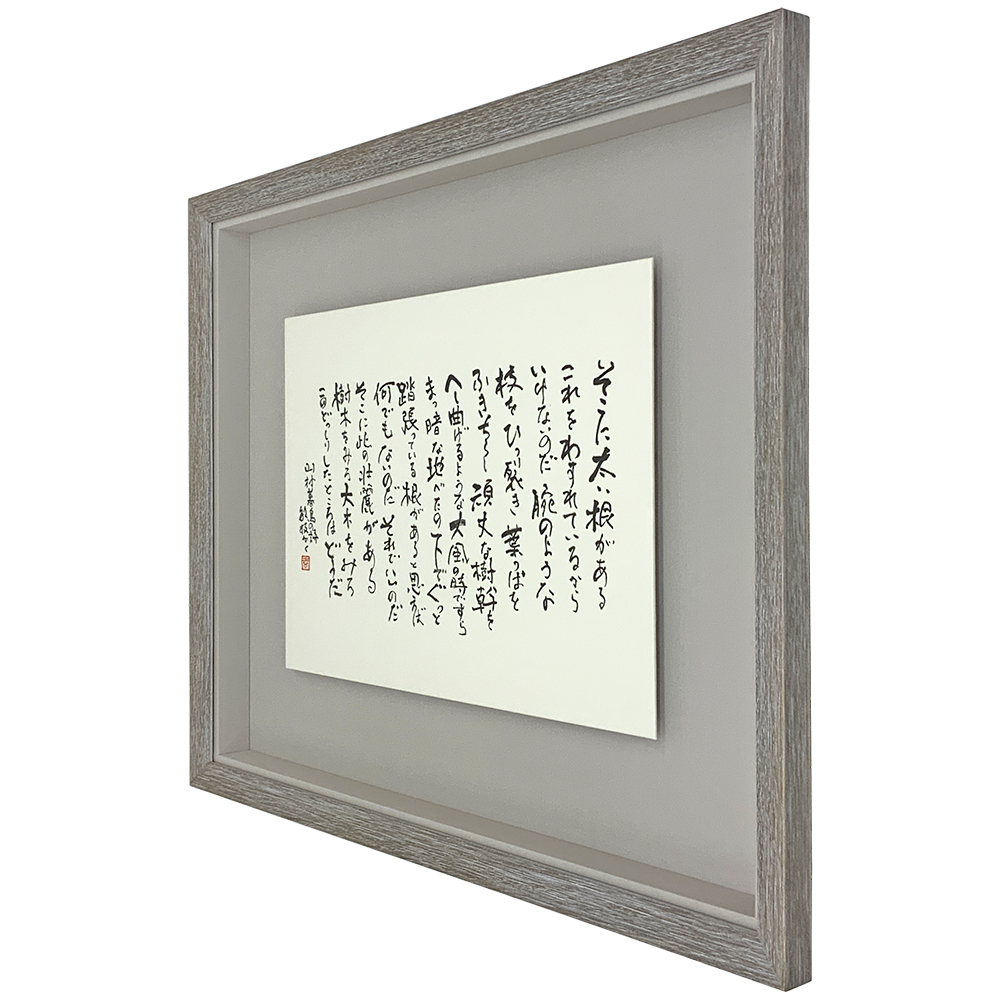 そこに太い根がある
これをわすれているから
いけないのだ 腕のような
枝をひっ裂き 葉っぱを
ふきちらし 頑丈な樹幹を
へし曲げるような大風の時ですら
まっ暗な地べたの下でぐっと
踏張っている根があると思えば
何でもないのだ それでいいのだ
そこに此の壮麗がある
樹木をみろ 大木をみろ
このどっしりしたところはどうだ
山村暮鳥の詩